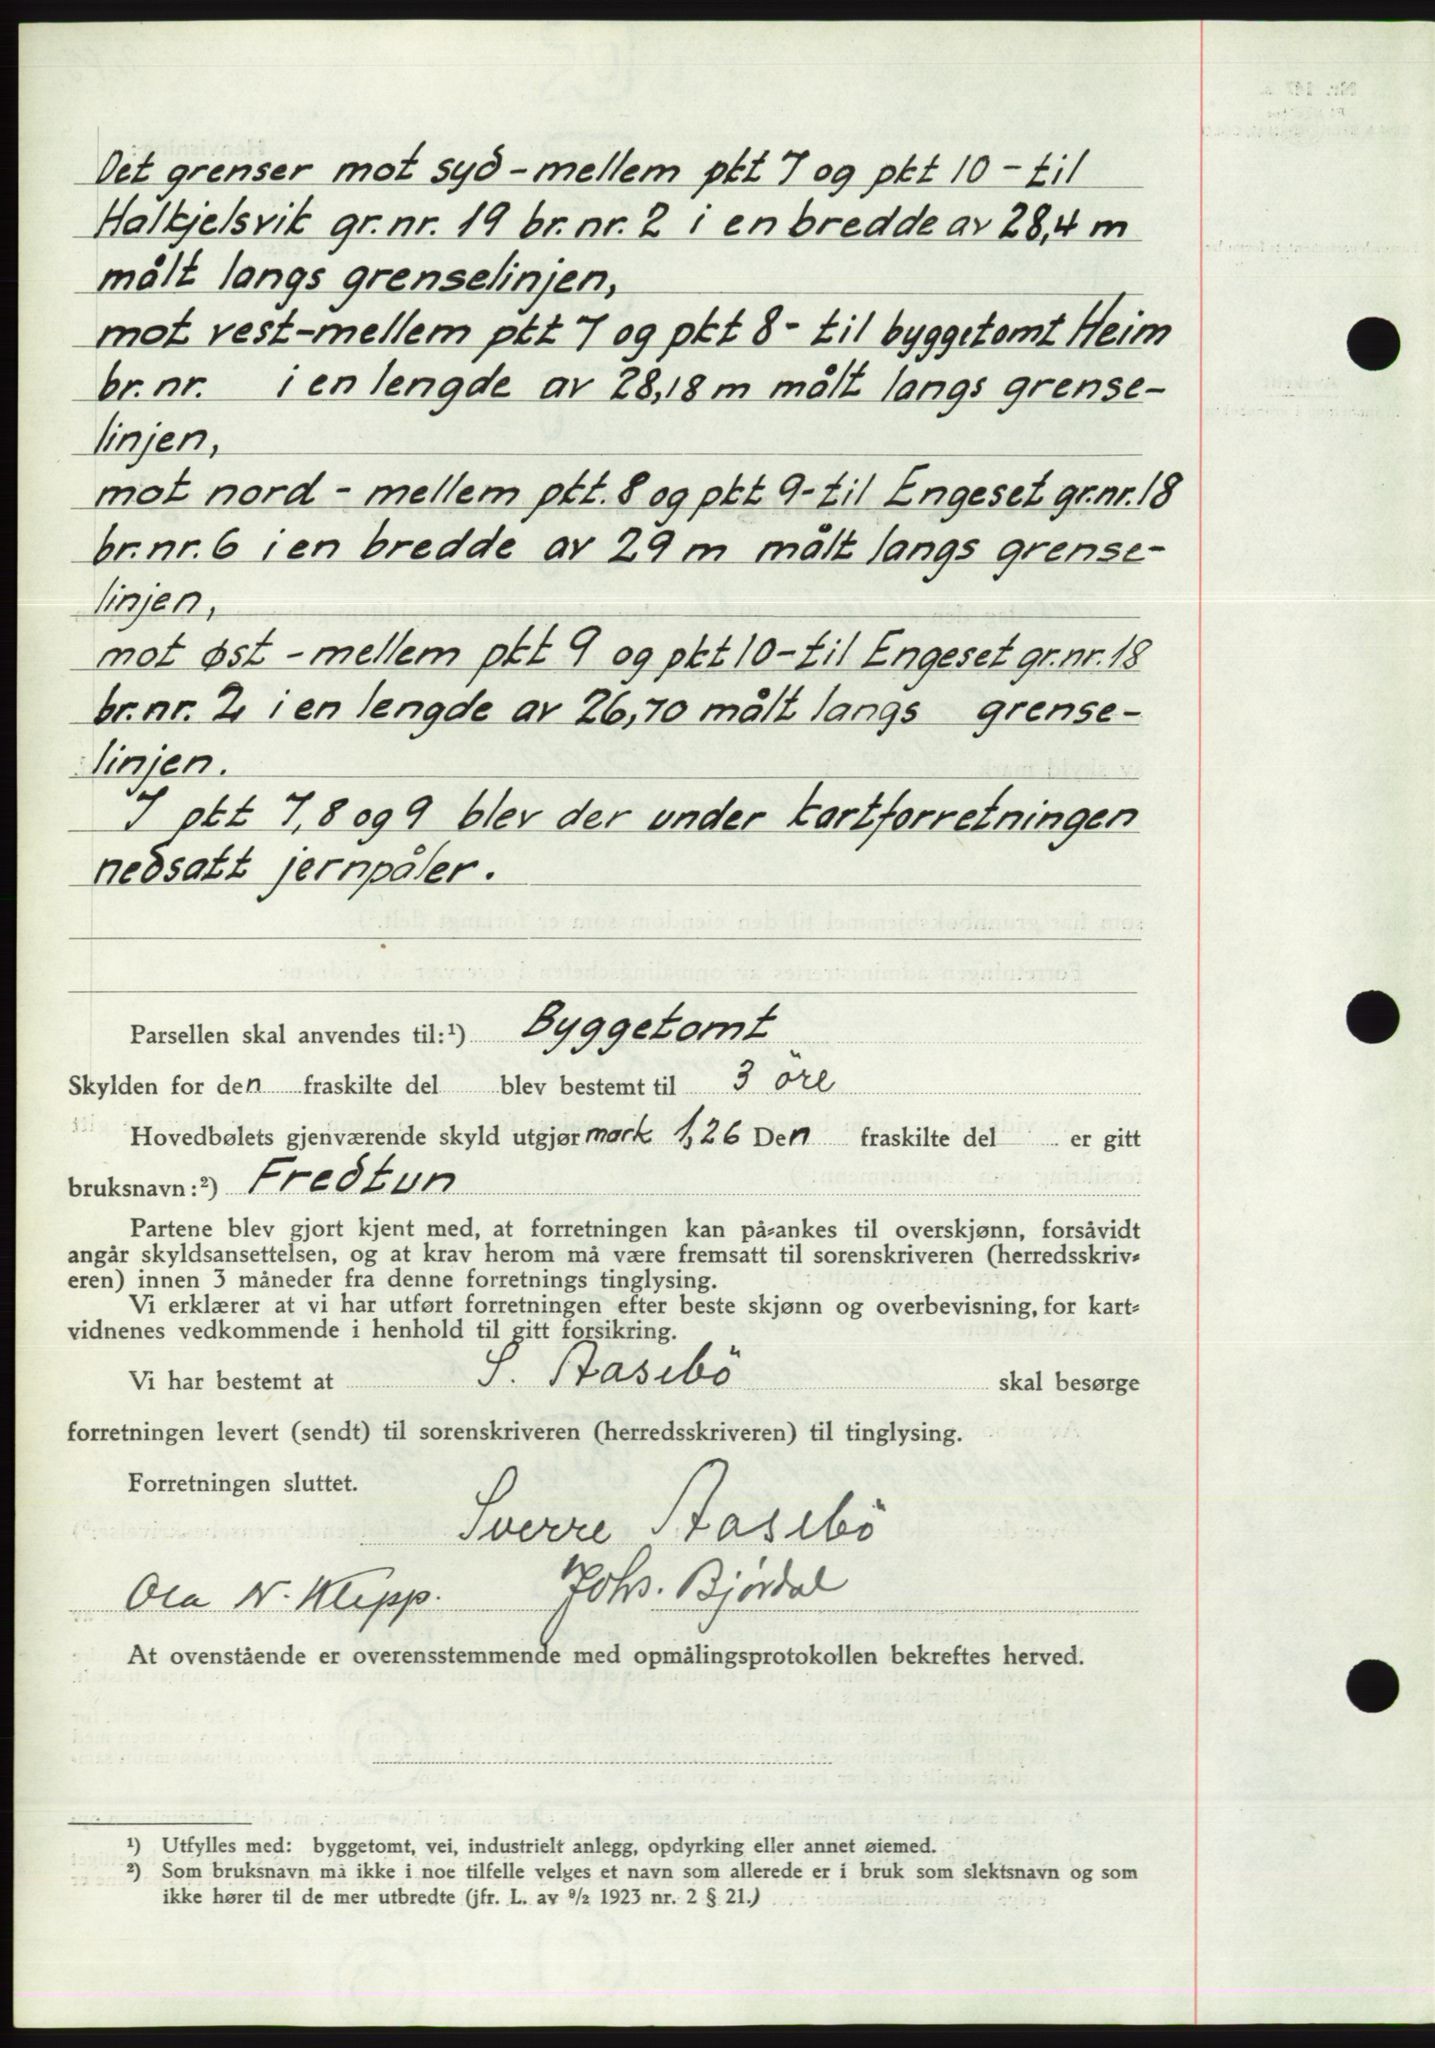 Det grenser mot syd - mellem pkt 7 og pkt 10 - til
Halkjelsvik gr.nr. 19 br.nr. 2 i en bredde av 28,4 m
målt langs grenselinjen,
mot vest - mellem pkt 7 og pkt 8 - til byggetomt Heim
br.nr. i en lengde av 28,18 m målt langs grense-
linjen,
mot nord - mellem pkt. 8 og pkt 9 - til Engeset gr.nr. 18
br.nr. 6 i en bredde av 29 m målt langs grense-
linjen,
mot øst - mellem pkt 9 og pkt 10 - til Engeset gr.nr. 18
br.nr. 2 i en lengde av 26,70 målt langs grense-
linjen.
I pkt 7, 8 og 9 blev der under kartforretningen
nedsatt jernpåler.
Parsellen skal anvendes til:¹) Byggetomt
Skylden for den fraskilte del blev bestemt til 3 öre
Hovedbølets gjenværende skyld utgjør mark 1,26 Den fraskilte del er gitt
bruksnavn:²) Fredtun
Partene blev gjort kjent med, at forretningen kan på-ankes til overskjønn, forsåvidt
angår skyldsansettelsen, og at krav herom må være fremsatt til sorenskriveren (herredsskriv-
eren) innen 3 måneder fra denne forretnings tinglysing.
Vi erklærer at vi har utført forretningen efter beste skjønn og overbevisning, for kart-
vidnenes vedkommende i henhold til gitt forsikring.
Vi har bestemt at S. Aasebö skal besørge
forretningen levert (sendt) til sorenskriveren (herredsskriveren) til tinglysing.
Forretningen sluttet.
Sverre Aasebö
Ola N. Klepp. Johs. Bjørdal
At ovenstående er overensstemmende med opmålingsprotokollen bekreftes herved.
¹) Utfylles med: byggetomt, vei, industrielt anlegg, opdyrking eller annet øiemed.
²) Som bruksnavn må ikke i noe tilfelle velges et navn som allerede er i bruk som slektsnavn og som
ikke hører til de mer utbredte (jfr. L. av ⁹/₂ 1923 nr. 2 § 21.)